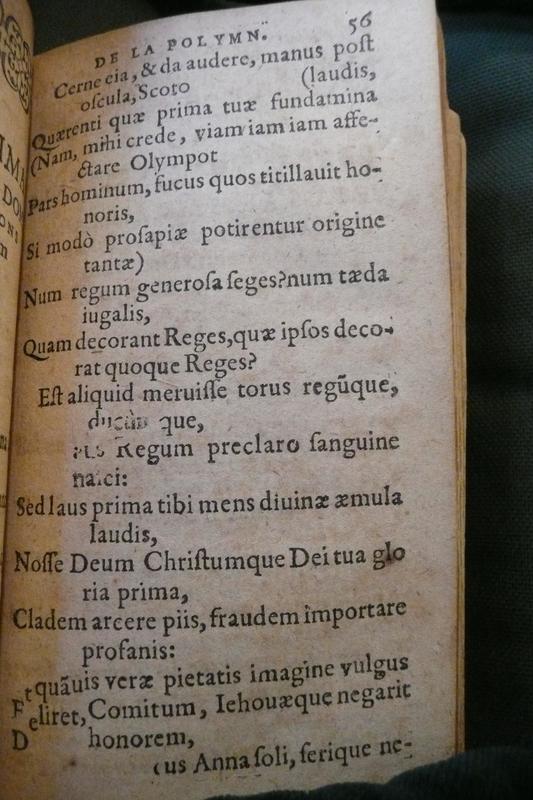 DE LA POLYMN. 56
Cerne eia, & da audere, manus poſt
oſcula, Scoto (laudis,
Quærenti quæ prima tuæ fundamina
(Nam, mihi crede, viam iam iam affe-
ctare Olympot
Pars hominum, fucus quos titillauit ho-
noris,
Si modò proſapiæ potirentur origine
tantæ)
Num regum generoſa ſeges? num tæda
iugalis,
Quam decorant Reges, quæ ipſos deco-
rat quoque Reges?
Eſt aliquid meruiſſe torus regũque,
que,
Regum preclaro ſanguine
naſci:
Sed laus prima tibi mens diuinæ æmula
laudis,
Noſſe Deum Chriſtumque Dei tua glo
ria prima,
Cladem arcere piis, fraudem importare
profanis:
Et quãuis veræ pietatis imagine vulgus
Deliret, Comitum, Iehouæque negarit
honorem,
us Anna ſoli, ſerique ne-